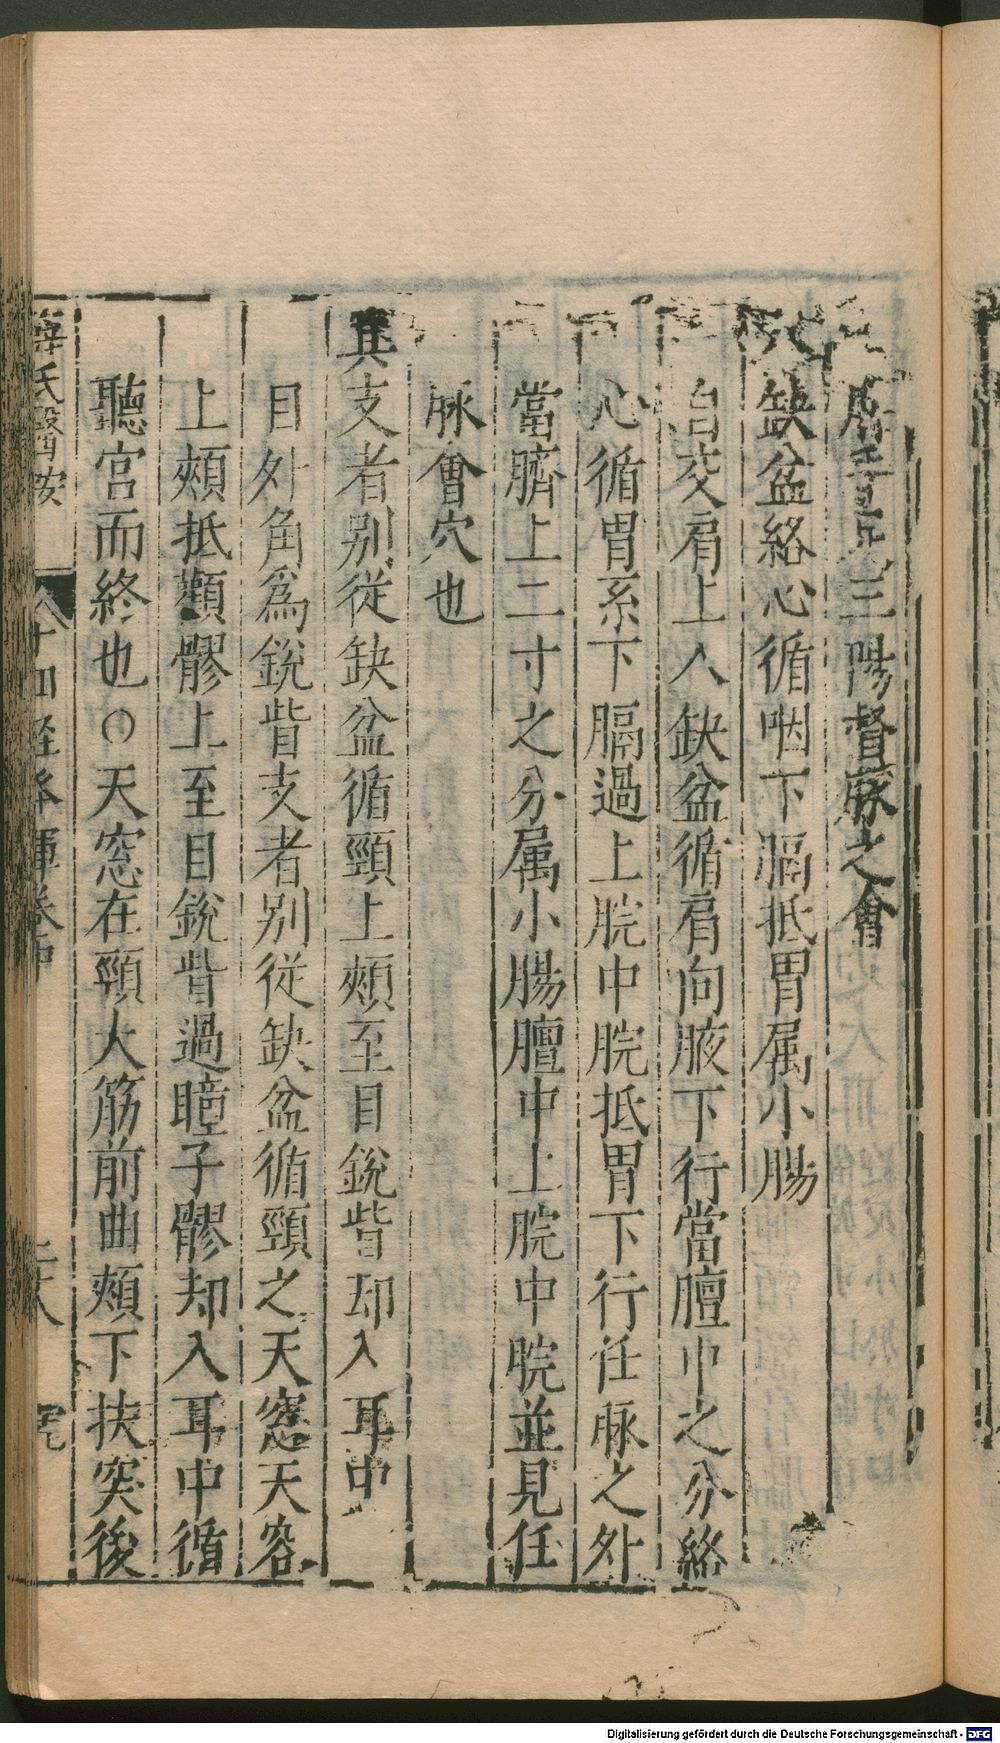 三陽督脉之會
缺盆絡心循咽下膈抵胃属小腸
自交肩上入缺盆循肩向腋下行當膻中之分絡
心循胃系下膈過上脘中脘抵胃下行任脉之外
當臍上二寸之分属小腸膻中上脘中脘並見任
脉會穴也
其支者別従缺盆循頸上頰至目銳眥却入耳中
目外角爲銳眥支者別従缺盆循頸之天窓天容
上頰抵顴髎上至目銳眥過瞳子髎却入耳中循
聽宮而終也〇天窓在頸大筋前曲頰下扶突後
薛氏醫按
十四經發揮卷中
二十八
Digitalisierung gefördert durch die Deutsche Forschungsgemeinschaft - DFG